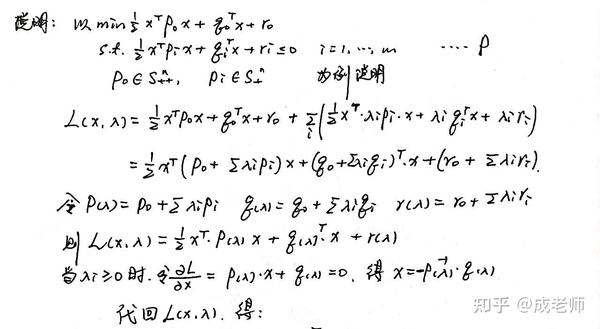 说明: 以 min ½xᵀP₀x + q₀ᵀx + r₀
s.t. ½xᵀPᵢx + qᵢᵀx + rᵢ ≤ 0 i=1,…,m ···· P
P₀∈Sⁿ₊₊, Pᵢ∈Sⁿ₊ 为例说明
L(x,λ) = ½xᵀP₀x + q₀ᵀx + r₀ + Σᵢ(½xᵀ·λᵢPᵢ·x + λᵢqᵢᵀx + λᵢrᵢ)
= ½xᵀ(P₀ + ΣλᵢPᵢ)x + (q₀+Σλᵢqᵢ)ᵀ·x + (r₀ + Σλᵢrᵢ).
令 P(λ) = P₀ + ΣλᵢPᵢ q(λ) = q₀ + Σλᵢqᵢ r(λ) = r₀ + Σλᵢrᵢ
则 L(x,λ) = ½xᵀ·P(λ)x + q(λ)ᵀ·x + r(λ)
当λᵢ≥0时. 令∂L/∂x = P(λ)·x + q(λ) = 0, 得 x=-P(λ)⁻¹·q(λ)
代回L(x,λ), 得:
知乎 @成老师